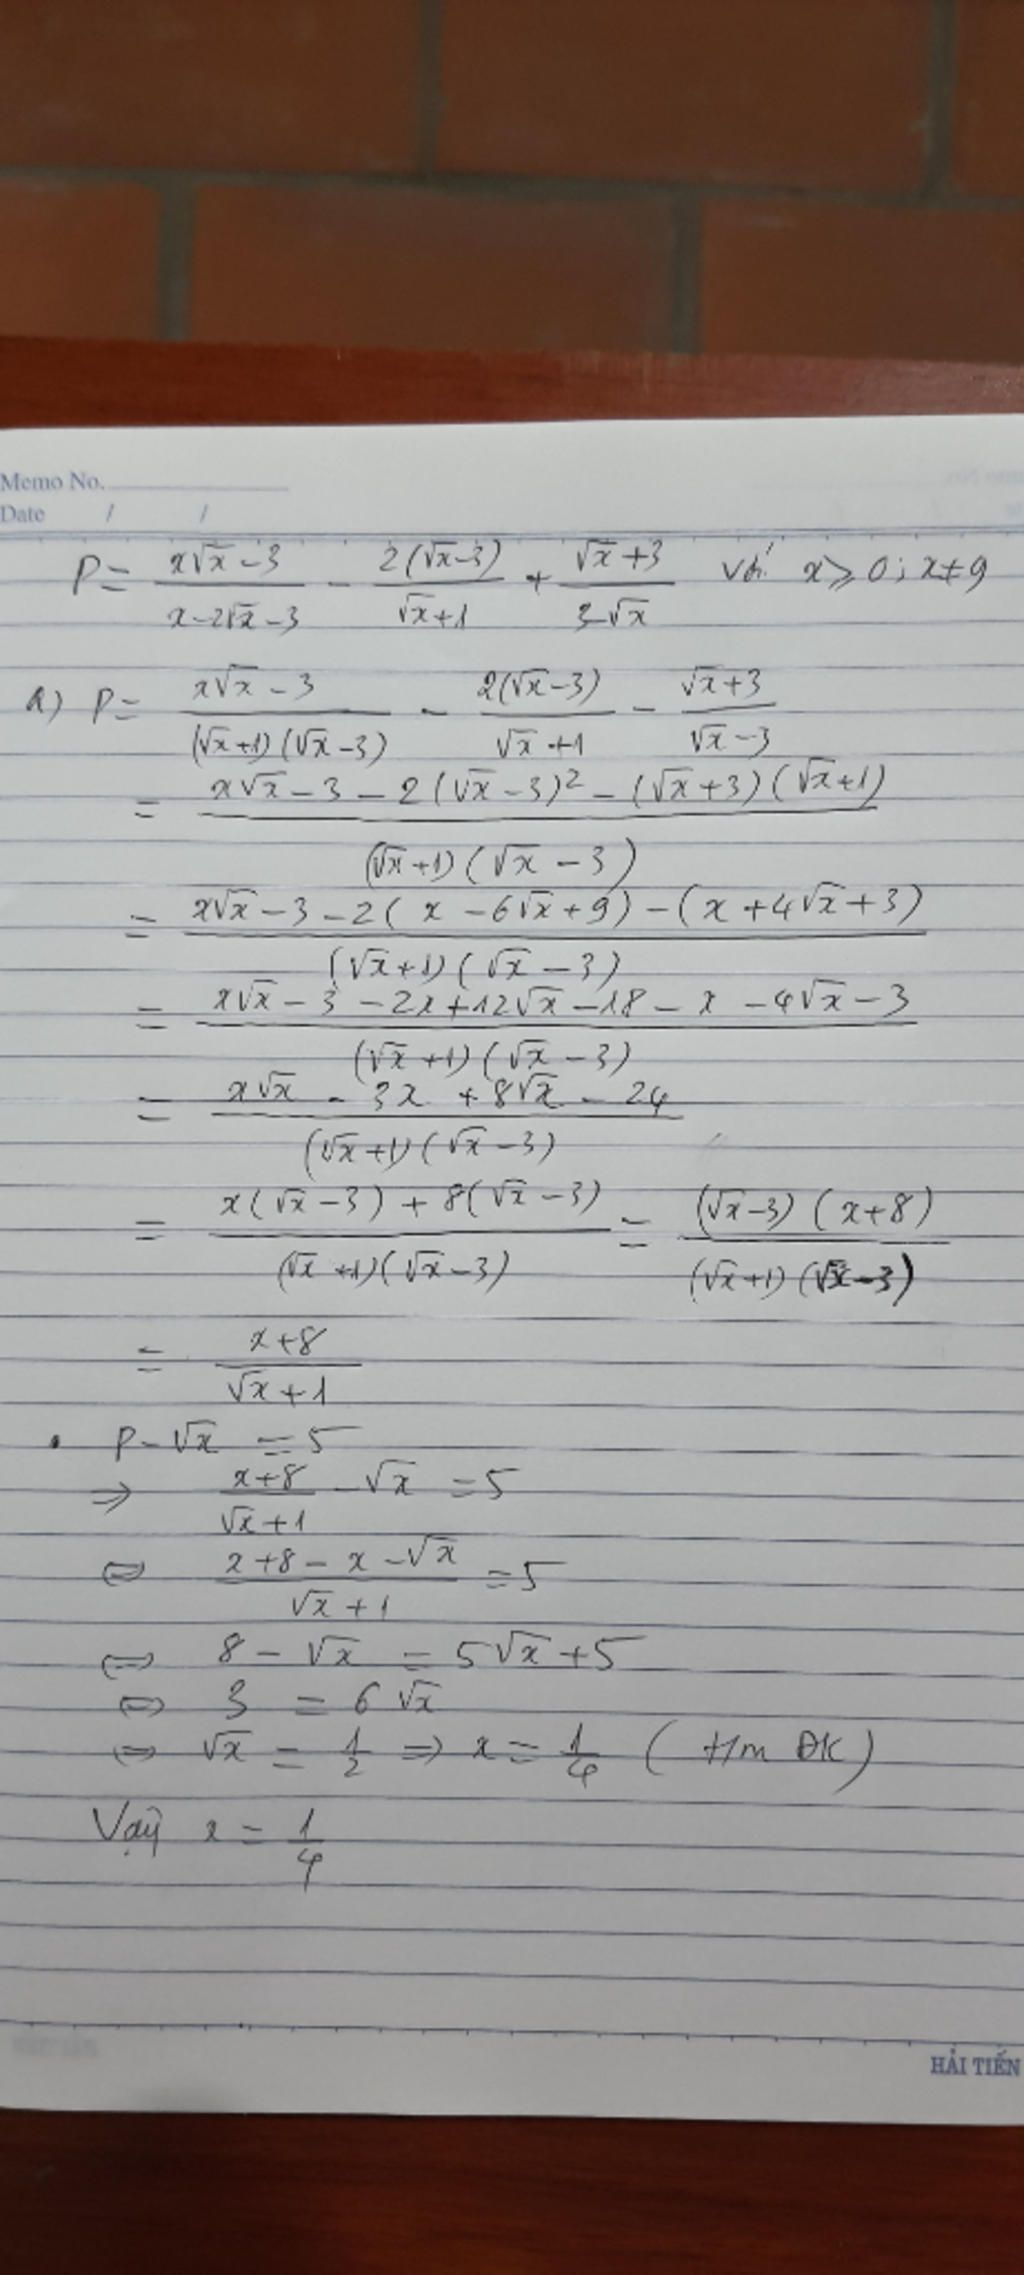 Memo No.
Date / /
P = (x√x - 3)/(x - 2√x - 3) - 2(√x - 3)/(√x + 1) + (√x + 3)/(3 - √x) với x ≥ 0; x ≠ 9
a) P = (x√x - 3)/((√x + 1)(√x - 3)) - 2(√x - 3)/(√x + 1) - (√x + 3)/(√x - 3)
= (x√x - 3 - 2(√x - 3)² - (√x + 3)(√x + 1))/((√x + 1)(√x - 3))
= (x√x - 3 - 2(x - 6√x + 9) - (x + 4√x + 3))/((√x + 1)(√x - 3))
= (x√x - 3 - 2x + 12√x - 18 - x - 4√x - 3)/((√x + 1)(√x - 3))
= (x√x - 3x + 8√x - 24)/((√x + 1)(√x - 3))
= (x(√x - 3) + 8(√x - 3))/((√x + 1)(√x - 3)) = ((√x - 3)(x + 8))/((√x + 1)(√x - 3))
= (x + 8)/(√x + 1)
• P - √x = 5
⇒ (x + 8)/(√x + 1) - √x = 5
⇔ (x + 8 - x - √x)/(√x + 1) = 5
⇔ 8 - √x = 5√x + 5
⇔ 3 = 6√x
⇔ √x = 1/2 ⇒ x = 1/4 (t/m ĐK)
Vậy x = 1/4
HẢI TIẾN